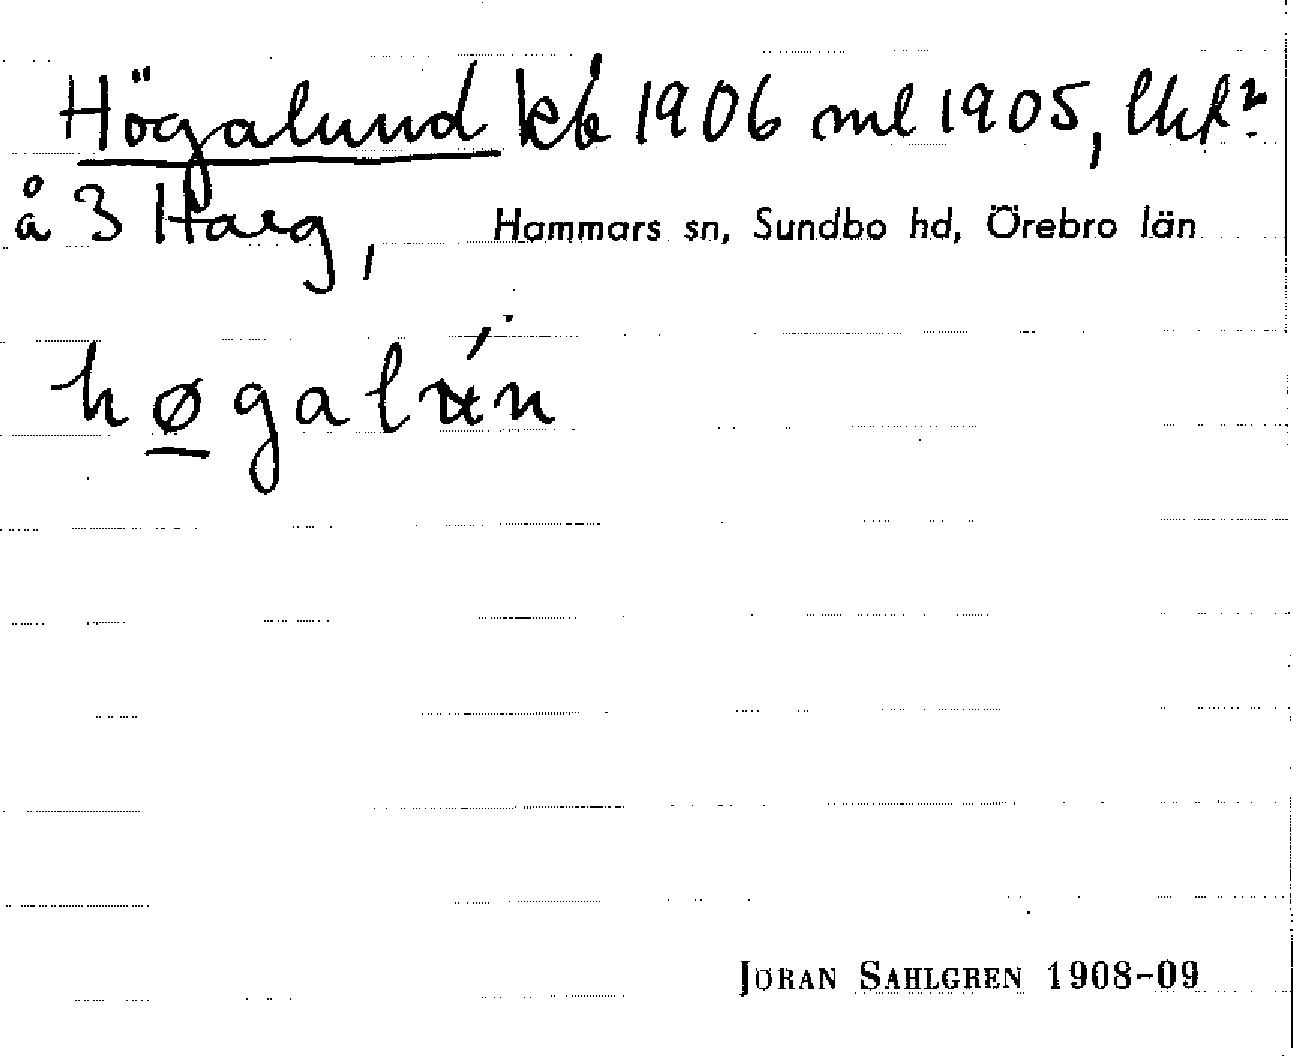 Högalund kb 1906 ml 1905, lht?
å 3 Harg, Hammars sn, Sundbo hd, Örebro län
høgalún
JÖRAN SAHLGREN 1908-09